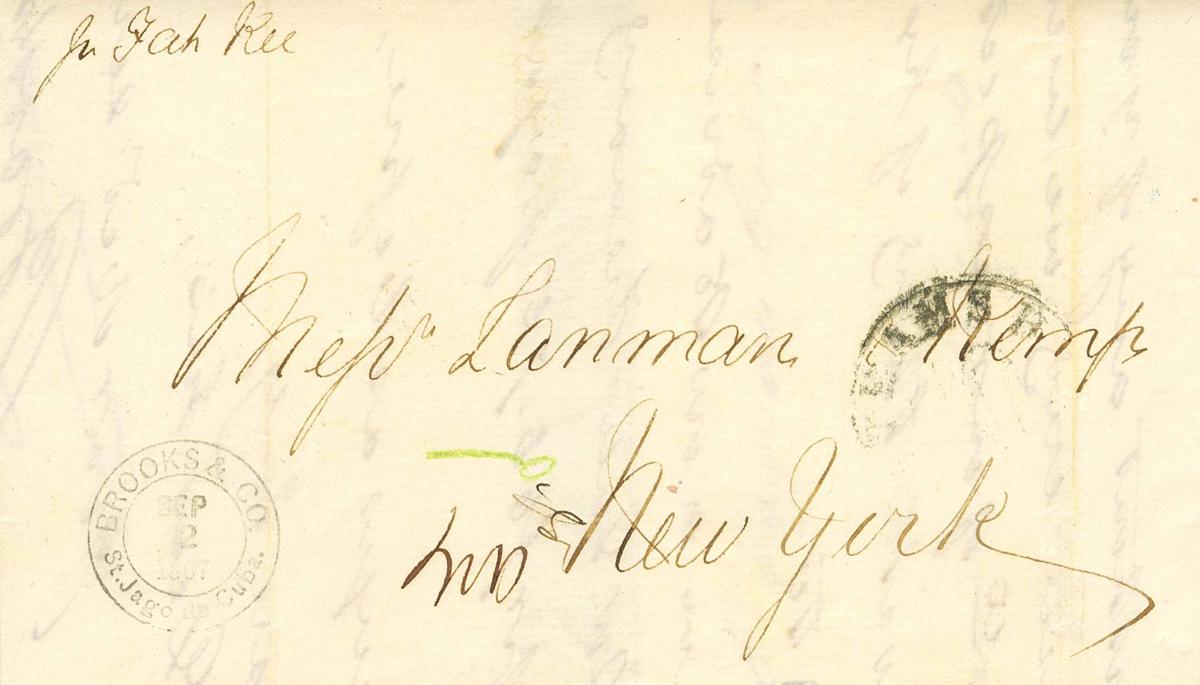 pr Fah Kee
Messrs Lanman Kemp
STEAMSH
New York
BROOKS & CO.
SEP
2
1867
St. Jago de Cuba.